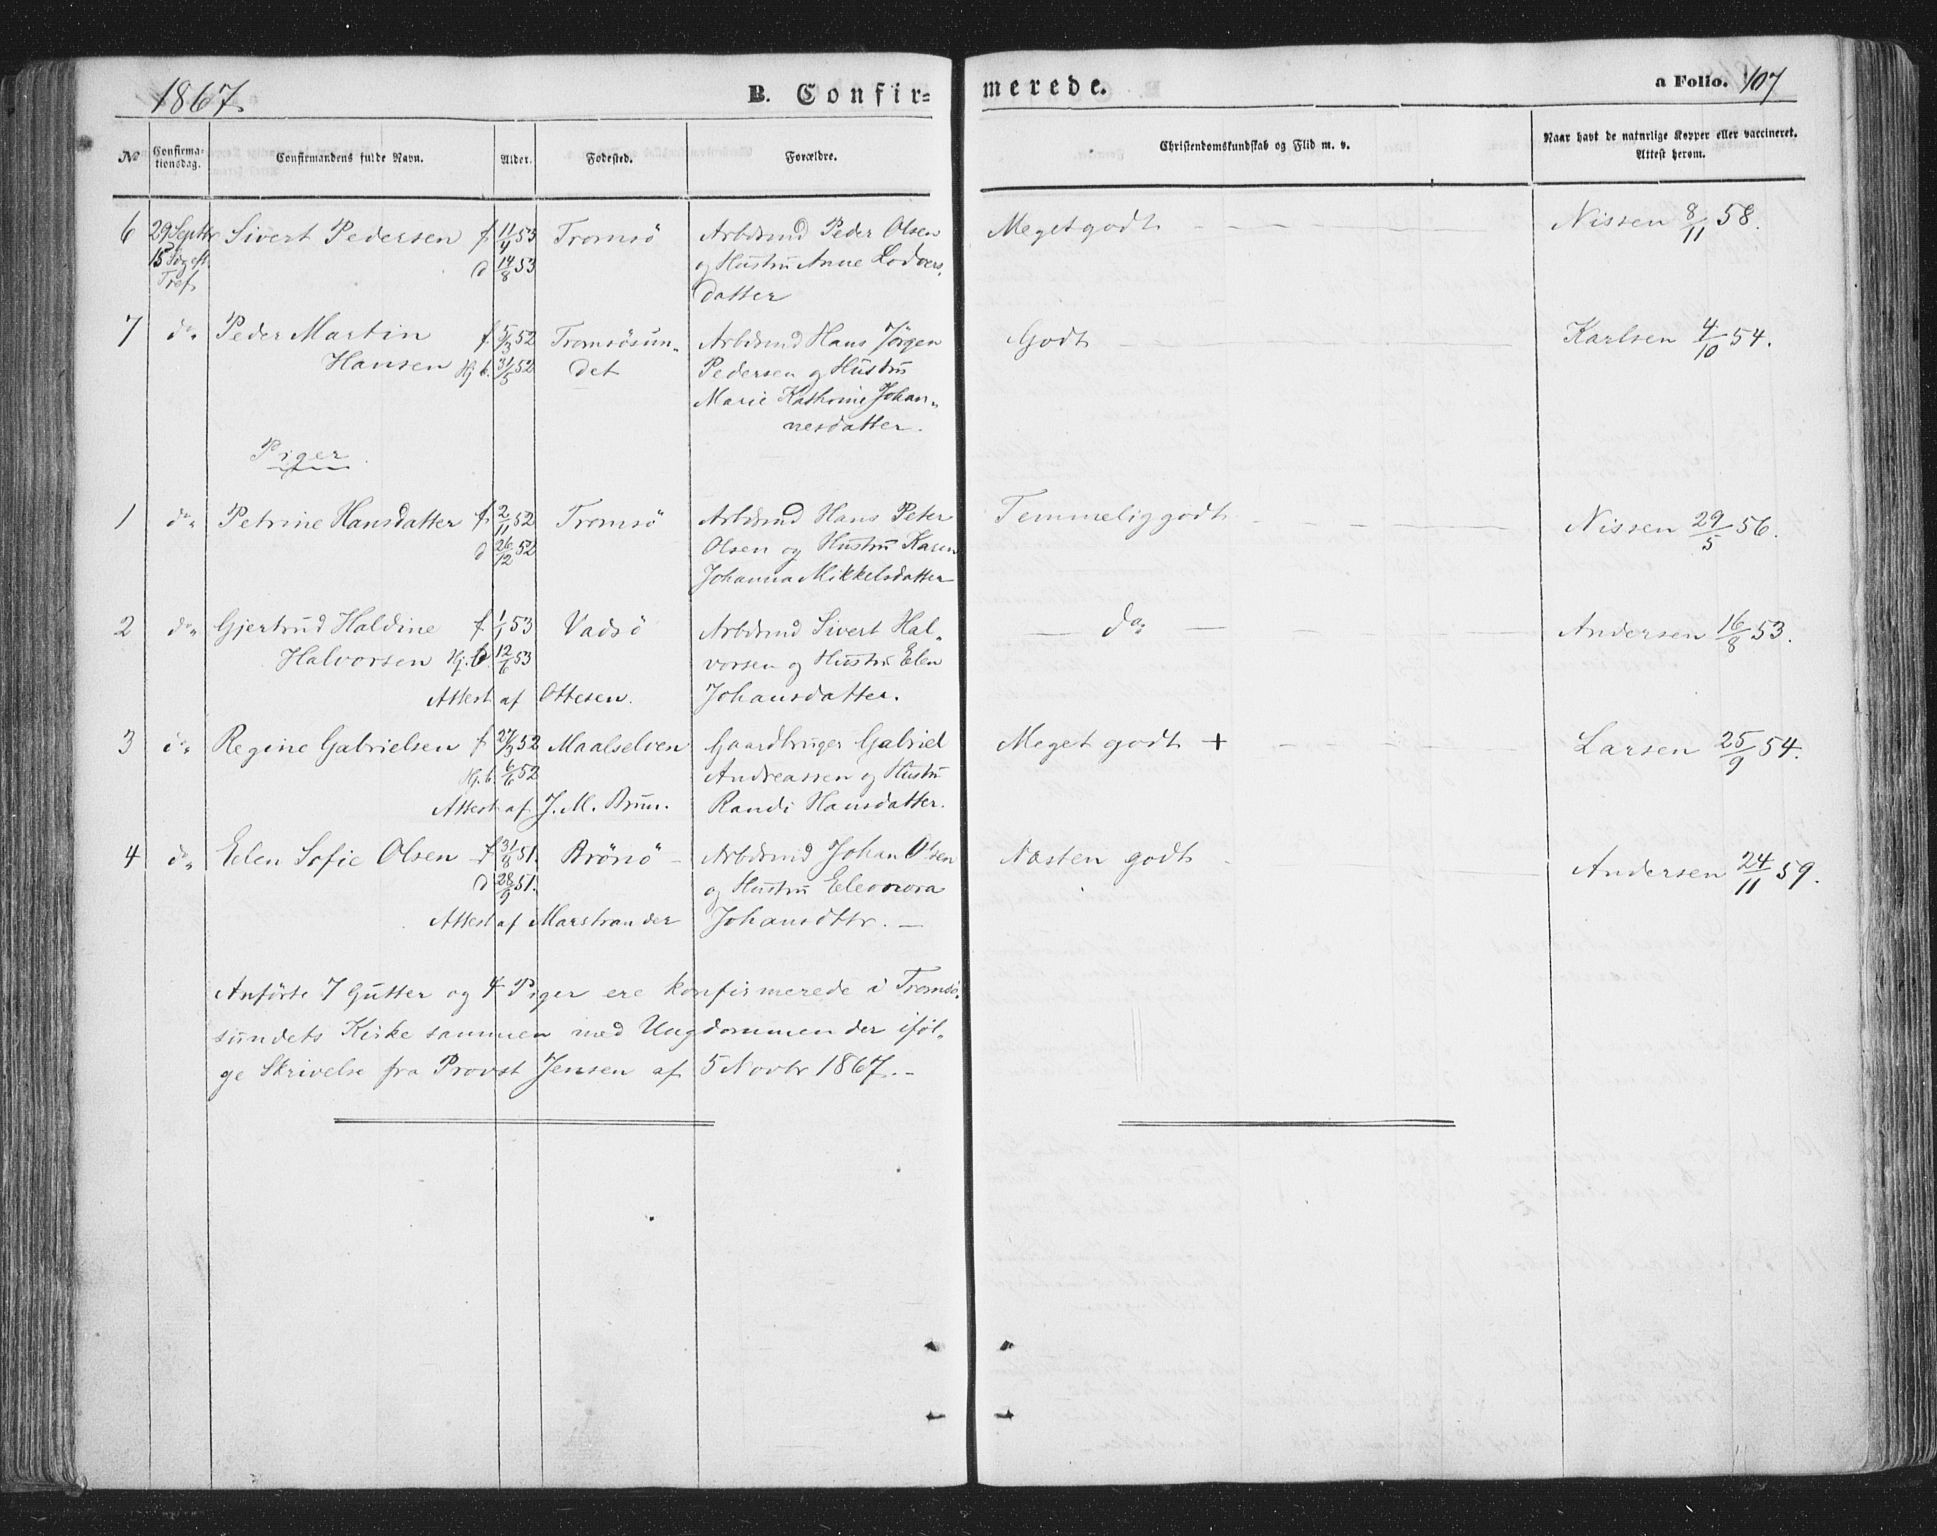 1867.
B. Confir=
merede.
a Folio. 107
No
Confirma-
tionsdag.
Confirmandens fulde Navn.
Alder.
Fødested.
Forældre.
Christendomskundskab og Flid m. v.
Naar havt de naturlige Kopper eller vaccineret.
Attest herom.
6 29 Septbr Sivert Pedersen f. 11/4 53 Tromsö Arbdsmd Peder Olsen Meget godt Nissen 8/11 58.
15 Sög. eft. d 14/8 53 og Hustru Anne Lodvers
Tref. datter
7 do Peder Martin f. 5/3 52 Tromsösun- Arbdsmd Hans Jörgen Godt Karlsen 4/10 54.
Hansen Hj. b. 31/5 52 det Pedersen og Hustru
Marie Kathrine Johan-
nesdatter.
Piger.
1 do Petrine Hansdatter f. 2/11 52 Tromsö Arbdsmd Hans Peter Temmelig godt Nissen 29/5 56.
d 26/12 52 Olsen og Hustru Karen
Johanna Mikkelsdatter
2 do Gjertrud Haldine f. 1/1 53 Vadsö Arbdsmd Sivert Hal- do Andersen 16/8 53.
Halvorsen Hj. b. 12/6 53 vorsen og Hustru Elen
Attest af Ottesen. Johansdatter.
3 do Regine Gabrielsen f 52 Maalselven Gaardbruger Gabriel Meget godt + Larsen 25/9 54.
Hj. b. 6/6 52 Andreassen og Hustru
Attest af J. M. Brun. Randi Hansdatter.
4 do Elen Sofie Olsen f 31/8 51. Brönö Arbdsmd Johan Olsen Næsten godt Andersen 24/11 59.
d 28/9 51. og Hustru Eleonora
Attest af Marstrander Johansdttr.
Anförte 7 Gutter og 4 Piger ere konfirmerede i Tromsö-
sundets Kirke sammen med Ungdommen der iföl-
ge Skrivelse fra Provst Jensen af 5 Novbr 1867.